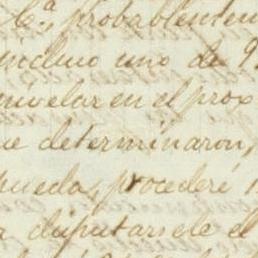 C.ª probablemen
incluso uno de 9
nivelar en el prox
ue determinaron,
pueda, procederé
a disputarsele el